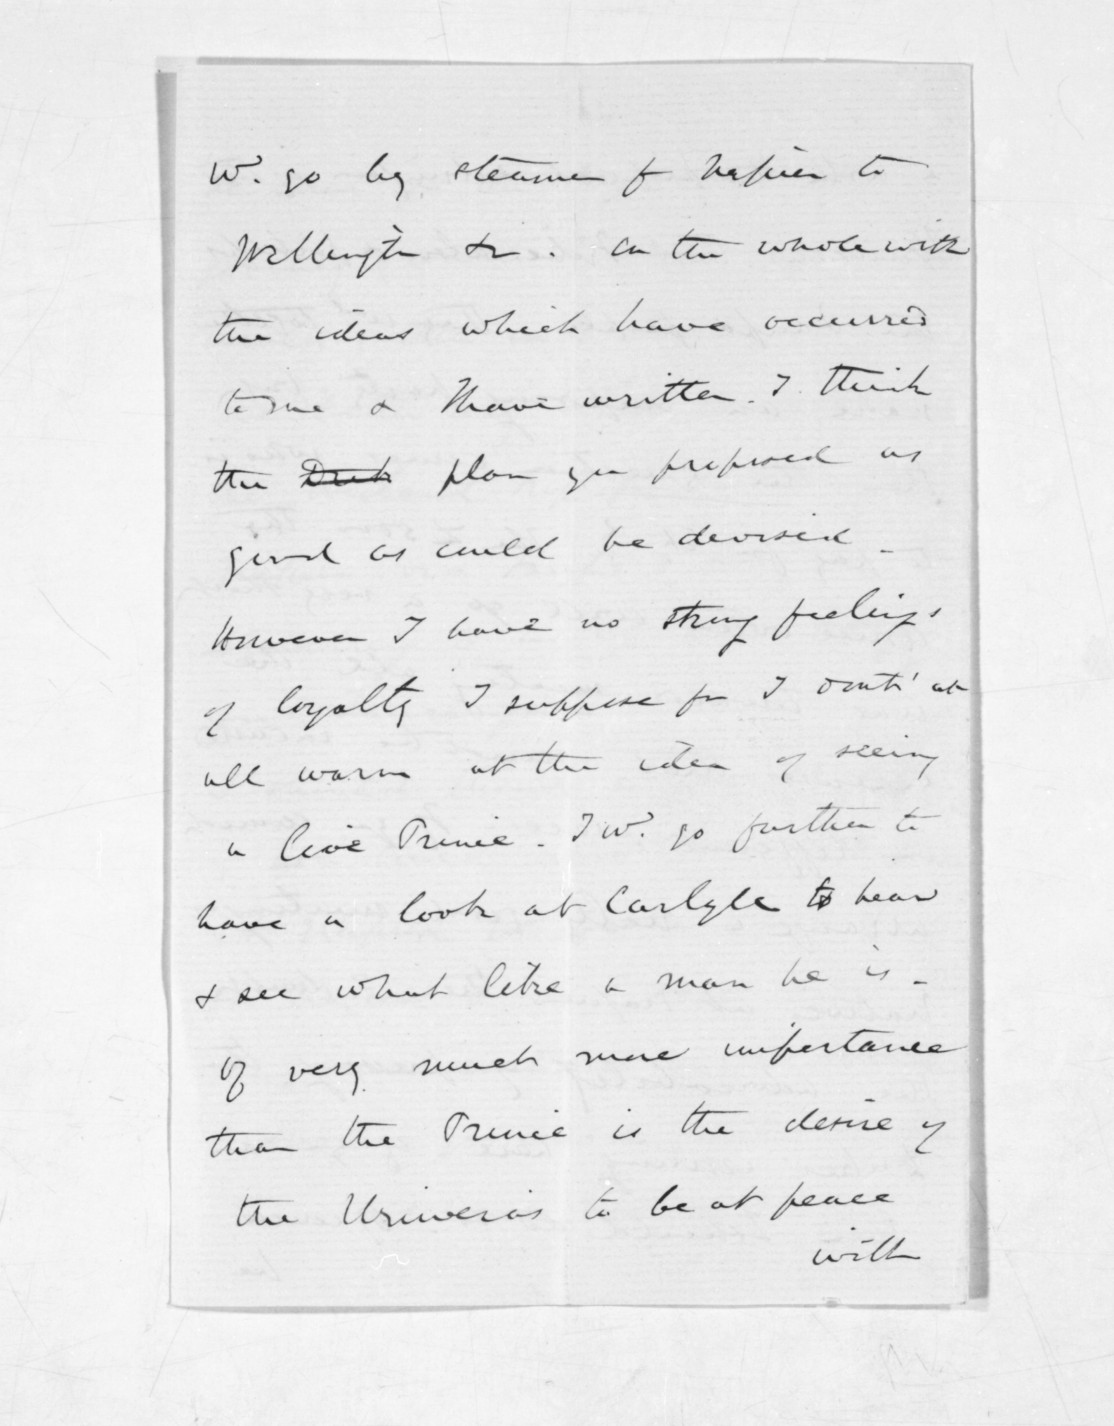 Wd. go by steamer f Napier to
Wellington &c. On the whole with
the ideas which have occurred
to me & I have written. I think
the plan you proposed as
good as could be devised _
However I have no strong feelings
of loyalty I suppose for I dont' at
all warm at the idea of seeing
a live Prince. I wd. go further to
have a look at Carlyle to hear
& see what like a man he is _
Of very much more importance
than the Prince is the desire of
the Uriweras to be at peace
with